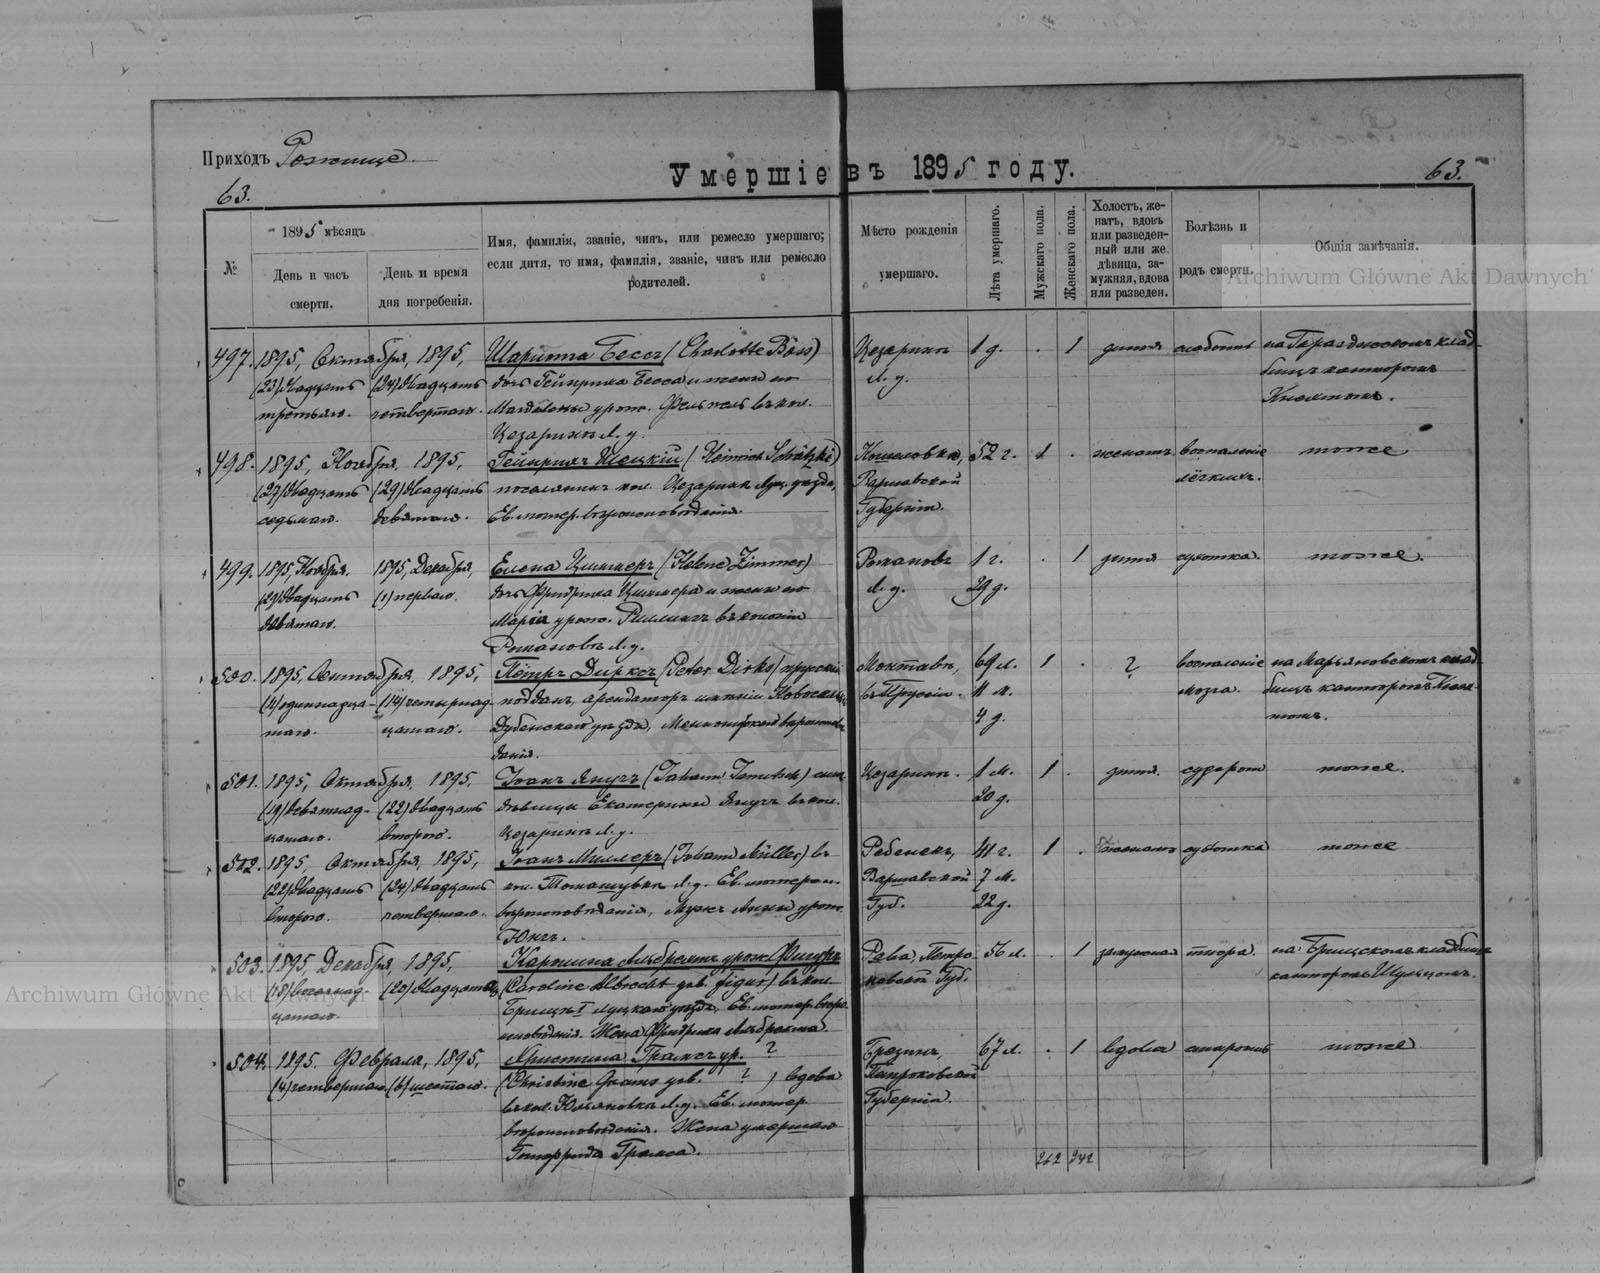 Приходъ Рожище
Умершіе въ 1895 году.
63.
63.
№
1895 мѣсяцъ
День и часъ смерти.
День и время дня погребенія.
Имя, фамилія, званіе, чинъ, или ремесло умершаго;
если дитя, то имя, фамилія, званіе, чинъ или ремесло
родителей.
Мѣсто рожденія
умершаго.
Лѣта умершаго.
Мужскаго пола.
Женскаго пола.
Холостъ, же-
натъ, вдовъ
или разведен-
ный или же
дѣвица, за-
мужняя, вдова
или разведен.
Болѣзнь и
родъ смерти.
Общія замѣчанія.
Archiwum Główne Akt Dawnych
497. 1895, Октября, 1895, Шарлотта Бессъ (Charlotte Bäss) Цезаринъ 1 д. . 1 дитя слабость на
(23) двадцать (24) двадцать дочь Гейнриха Бесса и жены его Л. у.
третьяго. четвертаго. Магдалены урож. въ кол.
Цезаринъ Л. у.
498. 1895, Ноября, 1895, Гейнрихъ Шецкій (Heinrich Schätzki) 52 г. 1 . женатъ воспаленіе тоже
(27) двадцать (29) двадцать поселянинъ кол. Цезаринъ Луц. уѣзда, Варшавской лёгкихъ.
седьмаго. девятаго. Ев. лютер. вѣроисповѣданія. Губерніи.
499. 1895, Ноября. 1895, Декабря, Елена Циммеръ (Helene Zimmer) Романовъ 1 г. . 1 дитя сухотка. тоже.
(29) двадцать (1) перваго. дочь Фридриха Циммера и жены его Л. у. 29 д.
девятаго. Маріи урож. въ колоніи
Романовъ Л. у.
500. 1895, 1895, Пётръ Дирксъ (Peter Dirks) прусскій 69 л. 1 . ? воспаленіе на Марьяновскомъ клад-
(11) одиннадца- (14) четырнад- поддан., арендаторъ имѣнія въ Пруссіи. 11 м. мозга. бищѣ канторомъ
таго. цатаго. Дубенскаго уѣзда, вѣроисповѣ- 4 д.
данія.
501. 1895, Октября, 1895, Іоанъ Янучъ (Johann Janutsch) сынъ Цезаринъ. 1 м. 1 . дитя. судороги тоже.
(19) девятнад- (22) двадцать дѣвицы Екатерины Янучъ въ кол. 20 д.
цатаго. второго. Цезаринъ Л. у.
502. 1895, Октября, 1895, Іоанъ Миллеръ (Johann Müller) въ 41 г. 1 . женатъ сухотка тоже
(22) двадцать (24) двадцать кол. Л. у. Ев. лютеран. Варшавской 7 м.
второго. четвертаго. вѣроисповѣданія, Мужъ Анны урож. Губ. 22 д.
Юнгъ.
503. 1895, Декабря, 1895, Каролина Альбрехтъ урож. Фигуръ Рава, Петро- 56 л. . 1 замужная на кладбищѣ
(18) восемнад- (20) двадцатаго (Caroline Albrecht geb. Figur) въ кол. ковской Губ. канторомъ Шульцомъ.
цатаго. I Луцкаго уѣзда, Ев. лютер. вѣро-
исповѣданія. Жена Фридриха Альбрехта.
Archiwum Główne Akt Dawnych
504. 1895. Февраля, 1895, Христина Грамсъ ур. ? 67 л. . 1 вдова старость тоже
(4) четвертаго (6) шестаго. (Christine Grams geb. ?) вдова Петроковской
въ кол. Юльяновкѣ Л. у. Ев. лютер. Губерніи.
вѣроисповѣданія. Жена умершаго
Готфрида Грамса.
262 242